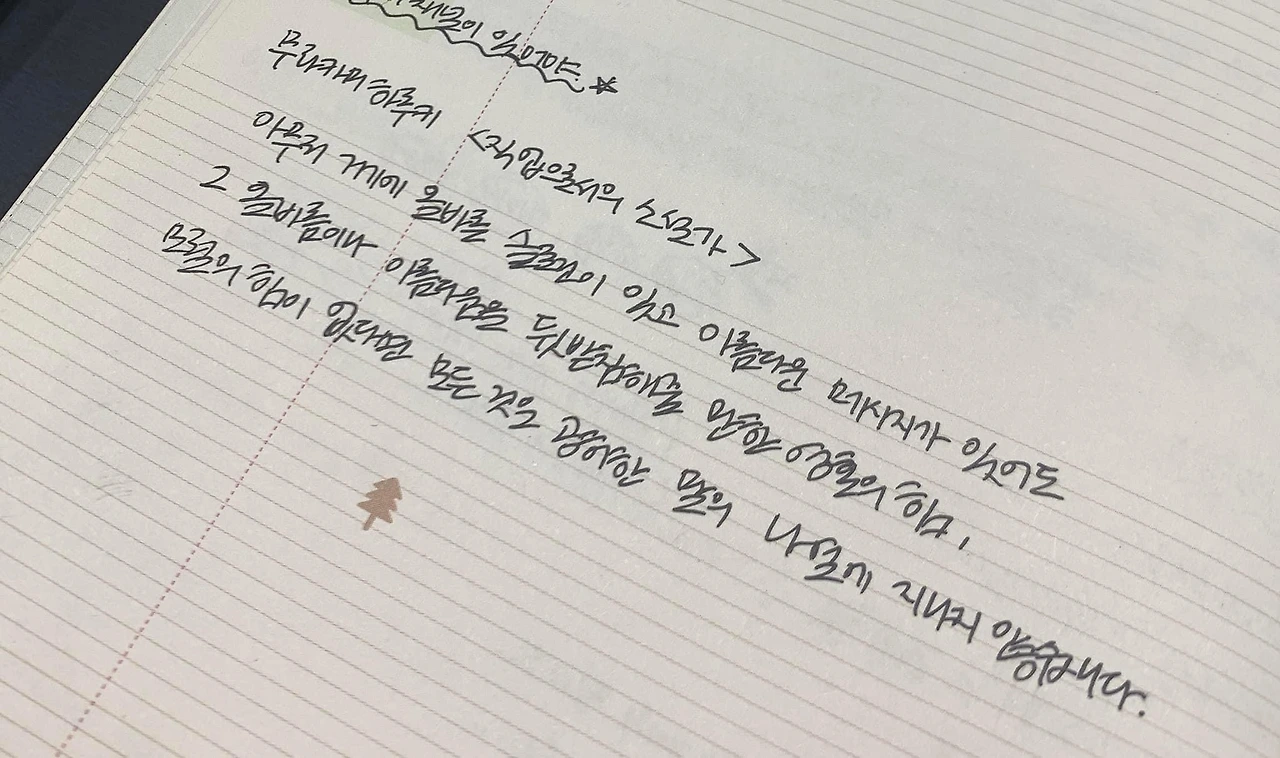 채널이 있어야. ☆
무라카미 하루키 <직업으로서의 소설가>
아무리 거기에 올바른 슬로건이 있고 아름다운 메시지가 있어도
그 올바름이나 아름다움을 뒷받침해줄 만한 영혼의 힘,
모럴의 힘이 없다면 모든 것은 공허한 말의 나열에 지나지 않습니다.